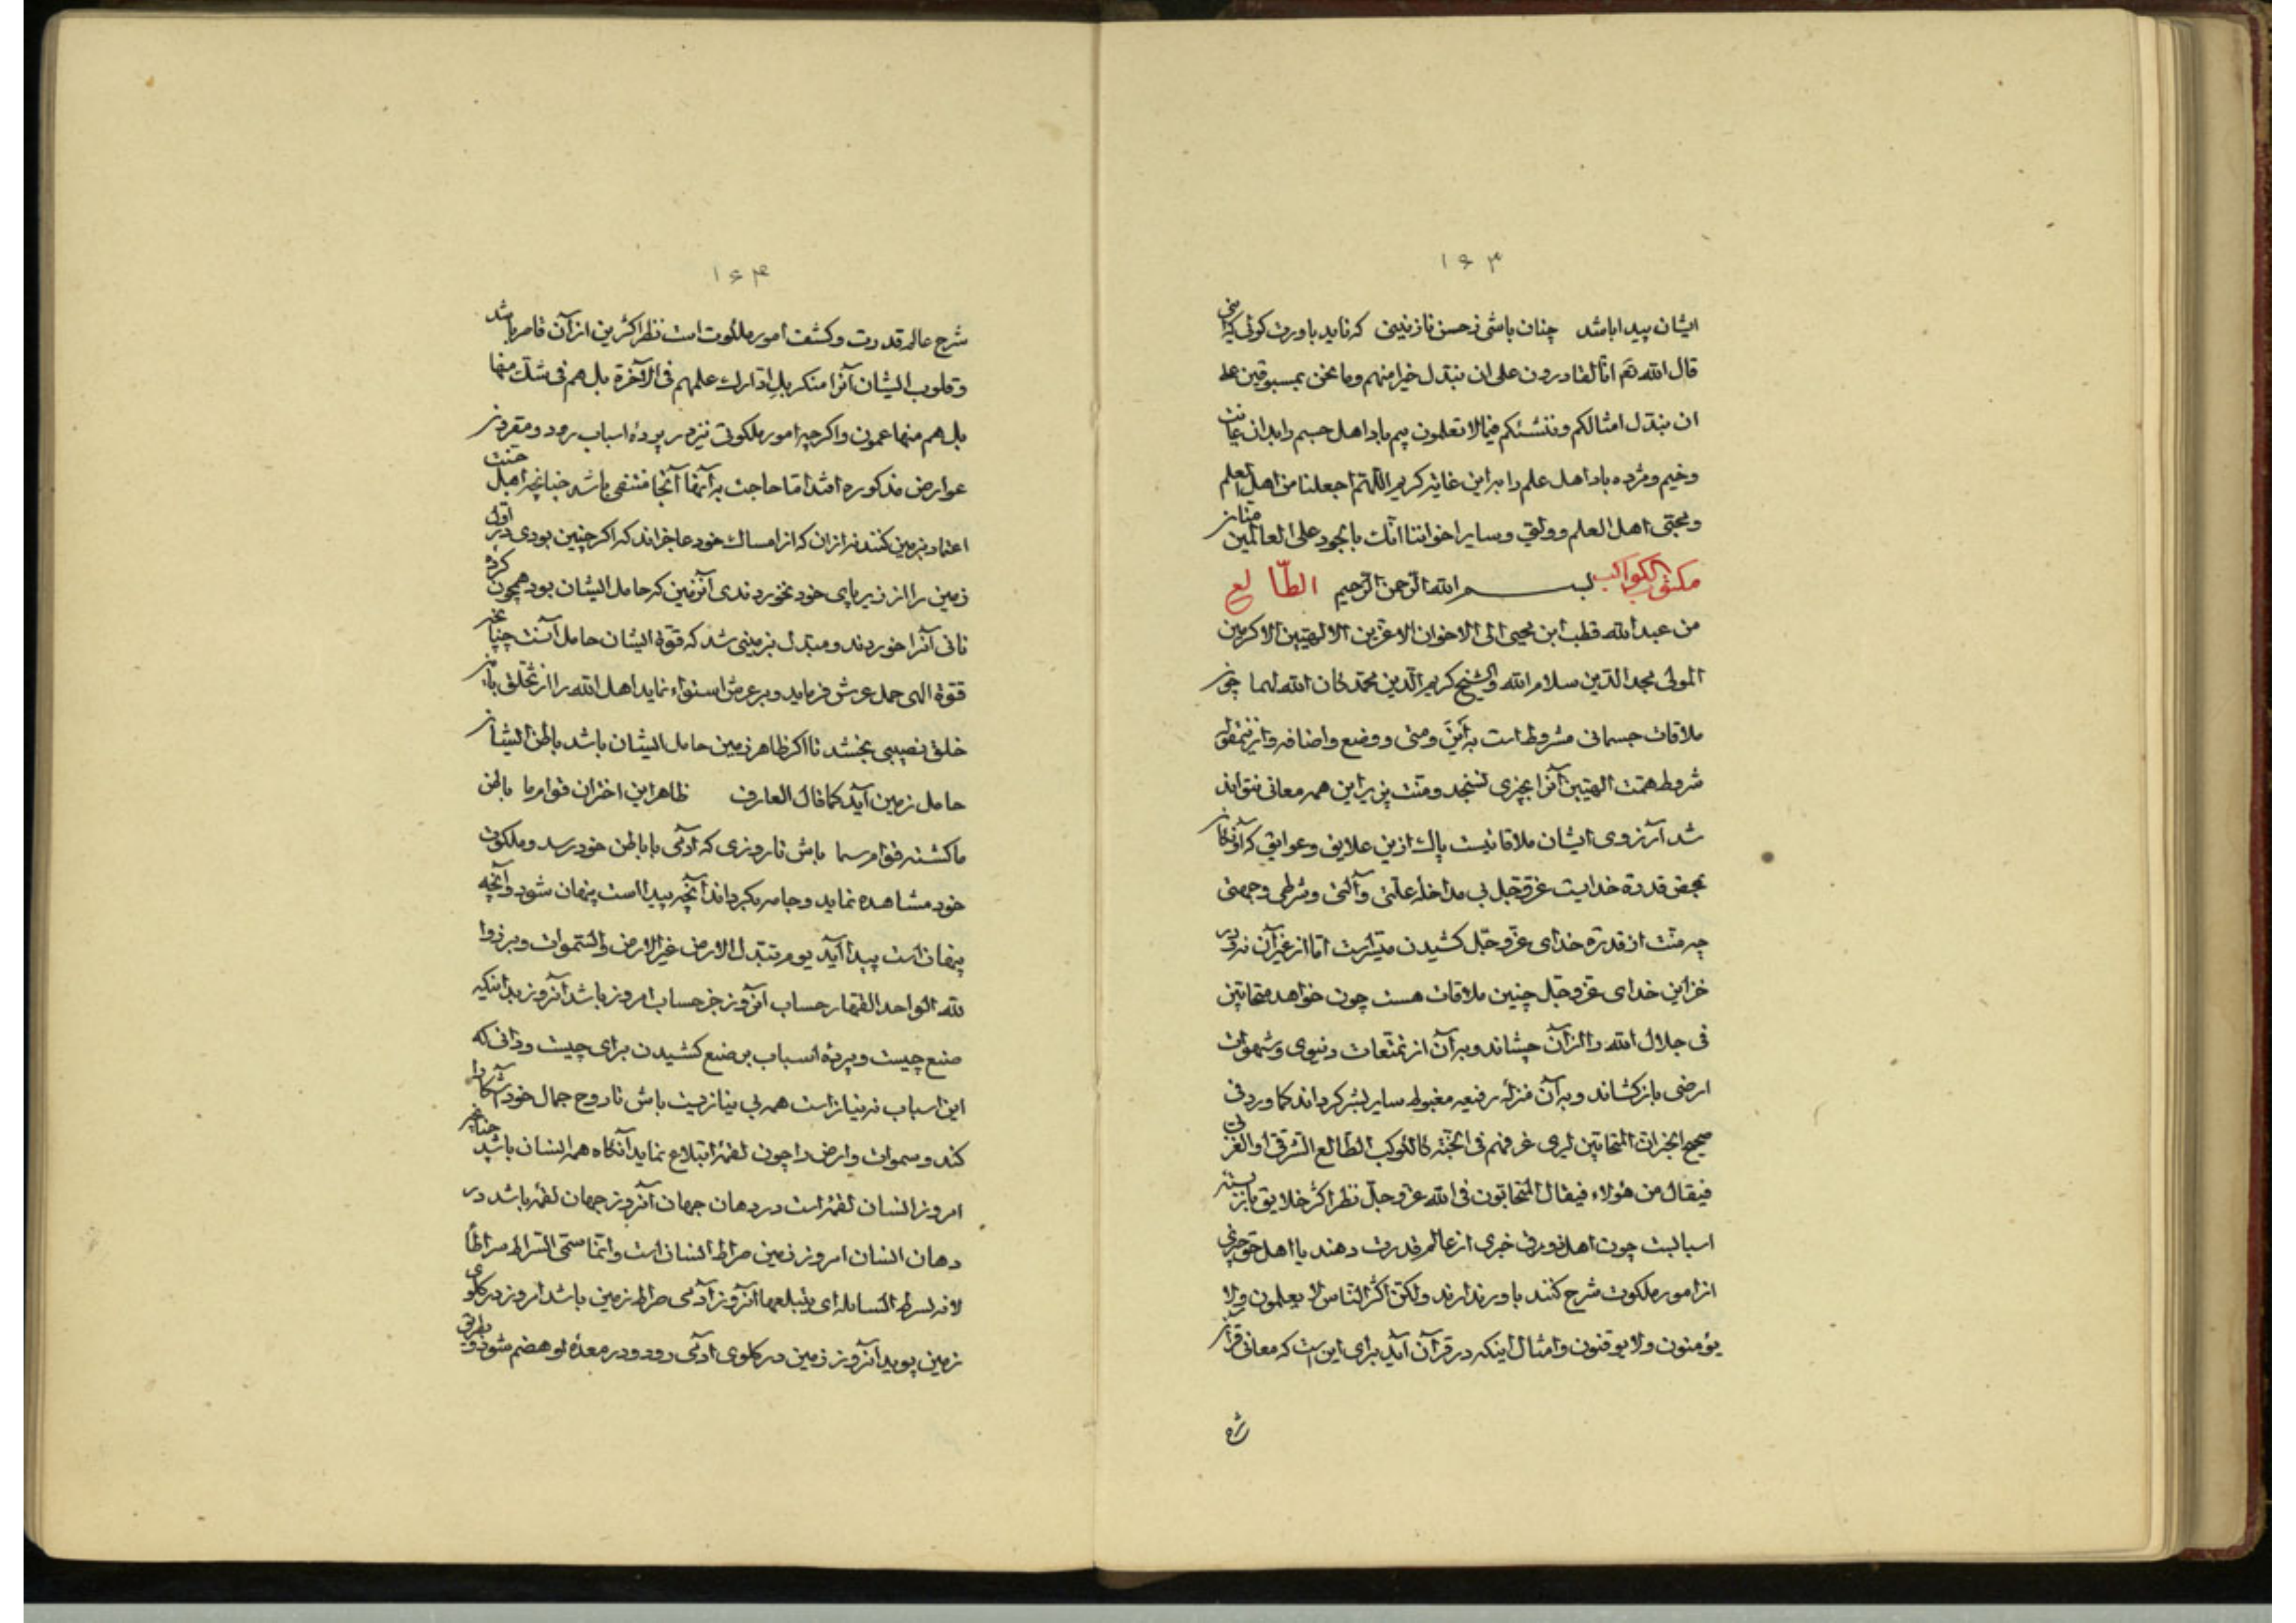 ۱۶۳
ایشان پیدا باشد چنان باشی ز حسن نازنینی که ناید باورت کوئی که اینی
قال الله تم انا لقادرون علی ان نبدل خیرا منهم وما نحن بمسبوقین علی
ان نبدل امثالکم وننشئکم فیما لا تعلمون بیم باد اهل جسم را بدان
وخیم ومژده باد اهل علم را براین غایة کریم اللهم اجعلنا من اهل العلم
ومحبی اهل العلم وسایر اخواننا انک بالجود علی العالمین
مکتوب الکواکب بسم الله الرحمن الرحیم الطالع
من عبد الله قطب ابن یحیی الی الاخوان الاعزین الالهیین الاکرمین
المولی مجد الدین سلام الله والشیخ کریم الدین محمد کان الله لهما چون
ملاقات جسمانی مشروط است به این ومتی ووضع واضافه واز نمط
شروط همت الهیین آنرا بچیزی نسنجد ومنت پذیر این همه معانی نتواند
شد آرزوی ایشان ملاقاتیست پاک ازین علایق وعوایق که آونکار
بمحض قدرة خدایست عز وجل بی مداخله علتی وآلتی وشرطی وجهتی
چه منت از قدرة خدای عز وجل کشیدن میسر است اما از غیر آن نه ودر
خزاین خدای عز وجل چنین ملاقات هست چون خواهد متحابین
فی جلال الله را از آن چشاند وبه آن از تمتعات دنیوی وشهوات
ارضی باز کشاند وبه آن منزله رفیعه مغبوط سایر بشر کرداند کما ورد فی
صحیح الخبر ان المتحابین لیری غرفهم فی الجنة کالکوکب الطالع الشرقی او الغربی
فیقال من هؤلاء فیقال المتحابون فی الله عز وجل نظر اکثر خلایق باز بسته
اسبابست چون اهل ذوق خبری از عالم قدرت دهند یا اهل حق چیزی
از امور ملکوت شرح کنند باور ندارند ولکن اکثر الناس لا یعلمون ولا
یؤمنون ولا یوقنون وامثال اینکه در قرآن آید برای این است که معانی قرآن
شرح
۱۶۴
شرح عالم قدرت وکشف امور ملکوت است نظر اکثرین از آن قاصر باشد
وقلوب ایشان آنرا منکر بل ادارک علمهم فی الآخرة بل هم فی شک منها
بل هم منها عمون واکرچه امور ملکوتی نیز در پرده اسباب رود ومقرون
عوارض مذکوره افتد اما حاجت به آنها آنجا منتفی باشد چنانچه اهل جنت
اعتماد بزمین کنند نه از آن که از امساک خود عاجزاند که اکر چنین بودی در اول
زمین را از زیر پای خود نخوردندی آنزمین که حامل ایشان بود همچون کرده
نانی آنرا خوردند ومبدل بزمینی شد که قوة ایشان حامل آنست چنانچه
قوة الهی حمل عرش فرماید وبر عرش استواء نماید اهل الله را از تخلق باین
خلق نصیبی بخشد تا اکر ظاهر زمین حامل ایشان باشد باطن ایشان
حامل زمین آید کما قال العارف ظاهر این اختران قوام ما باطن
ما کشته قوام سما باش تا روزی که آدمی با باطن خود رسد وملکوت
خود مشاهده نماید وجامه بکرداند آنچه پیدا است پنهان شود وآنچه
پنهان است پیدا آید یوم تبدل الارض غیر الارض والسموات وبرزوا
لله الواحد القهار حساب آنروز جز حساب امروز باشد آنروز بدانیکه
صنع چیست وپرده اسباب بر صنع کشیدن برای چیست ودانی که
این اسباب نه نیاز است همه بی نیازیست باش تا روح جمال خود آشکارا
کند وسموات وارض را چون لقمه ابتلاع نماید آنکاه همه انسان باشد چنانچه
امروز انسان لقمه است در دهان جهان آنروز جهان لقمه باشد در
دهان انسان امروز زمین صراط انسان است وانما سمی السراط سراطاً
لانه یسرط السابله ای یبتلعها آنروز آدمی صراط زمین باشد امروز در کلوی
زمین پوید آنروز زمین در کلوی آدمی رود ودر معده او هضم شود بطریق